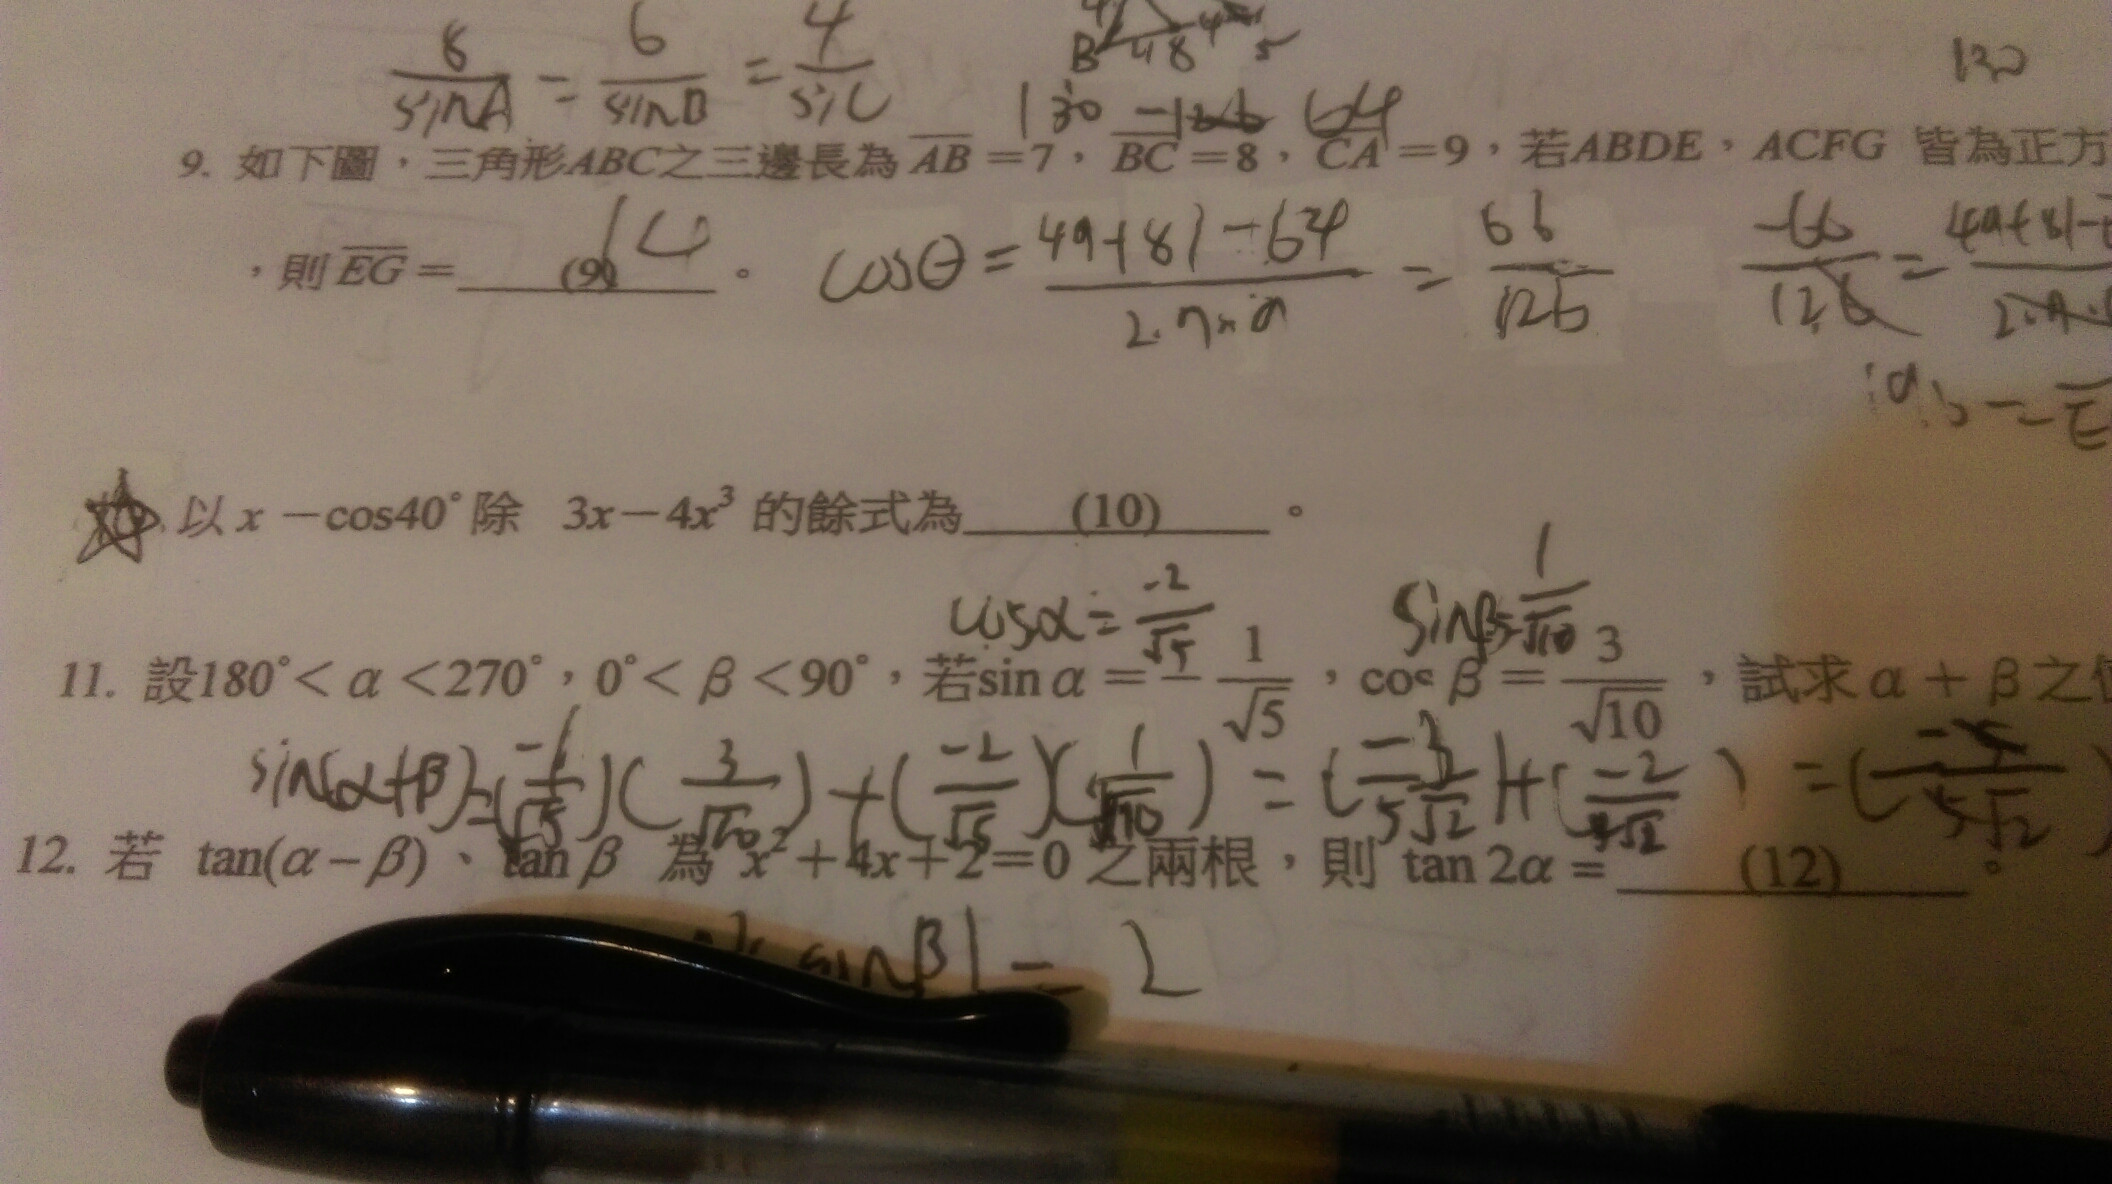 8/sinA = 6/sinB = 4/sinC
B 48
130
130 -126 64
9. 如下圖，三角形ABC之三邊長為 AB＝7，BC＝8，CA＝9，若ABDE，ACFG 皆為正方
，則EG＝ (9) 14 。 cosθ = 49+81-64/2·7×9 = 66/126 -66/126 = 49+81-
以 x －cos40°除 3x－4x³ 的餘式為 (10) 。
cosα = -2/√5 sinβ = 1/√10
11. 設180°< α <270°，0°< β <90°，若sin α ＝－ 1/√5 ，cos β ＝ 3/√10 ，試求 α ＋ β 之
sin(α+β) = (-1/√5)(3/√10) + (-2/√5)(1/√10) = (-3/5√2) + (-2/5√2) = (-5/5√2)
12. 若 tan(α－β)、tan β 為 x²＋4x＋2＝0 之兩根，則 tan 2α＝ (12) 。
sinβ) = 2